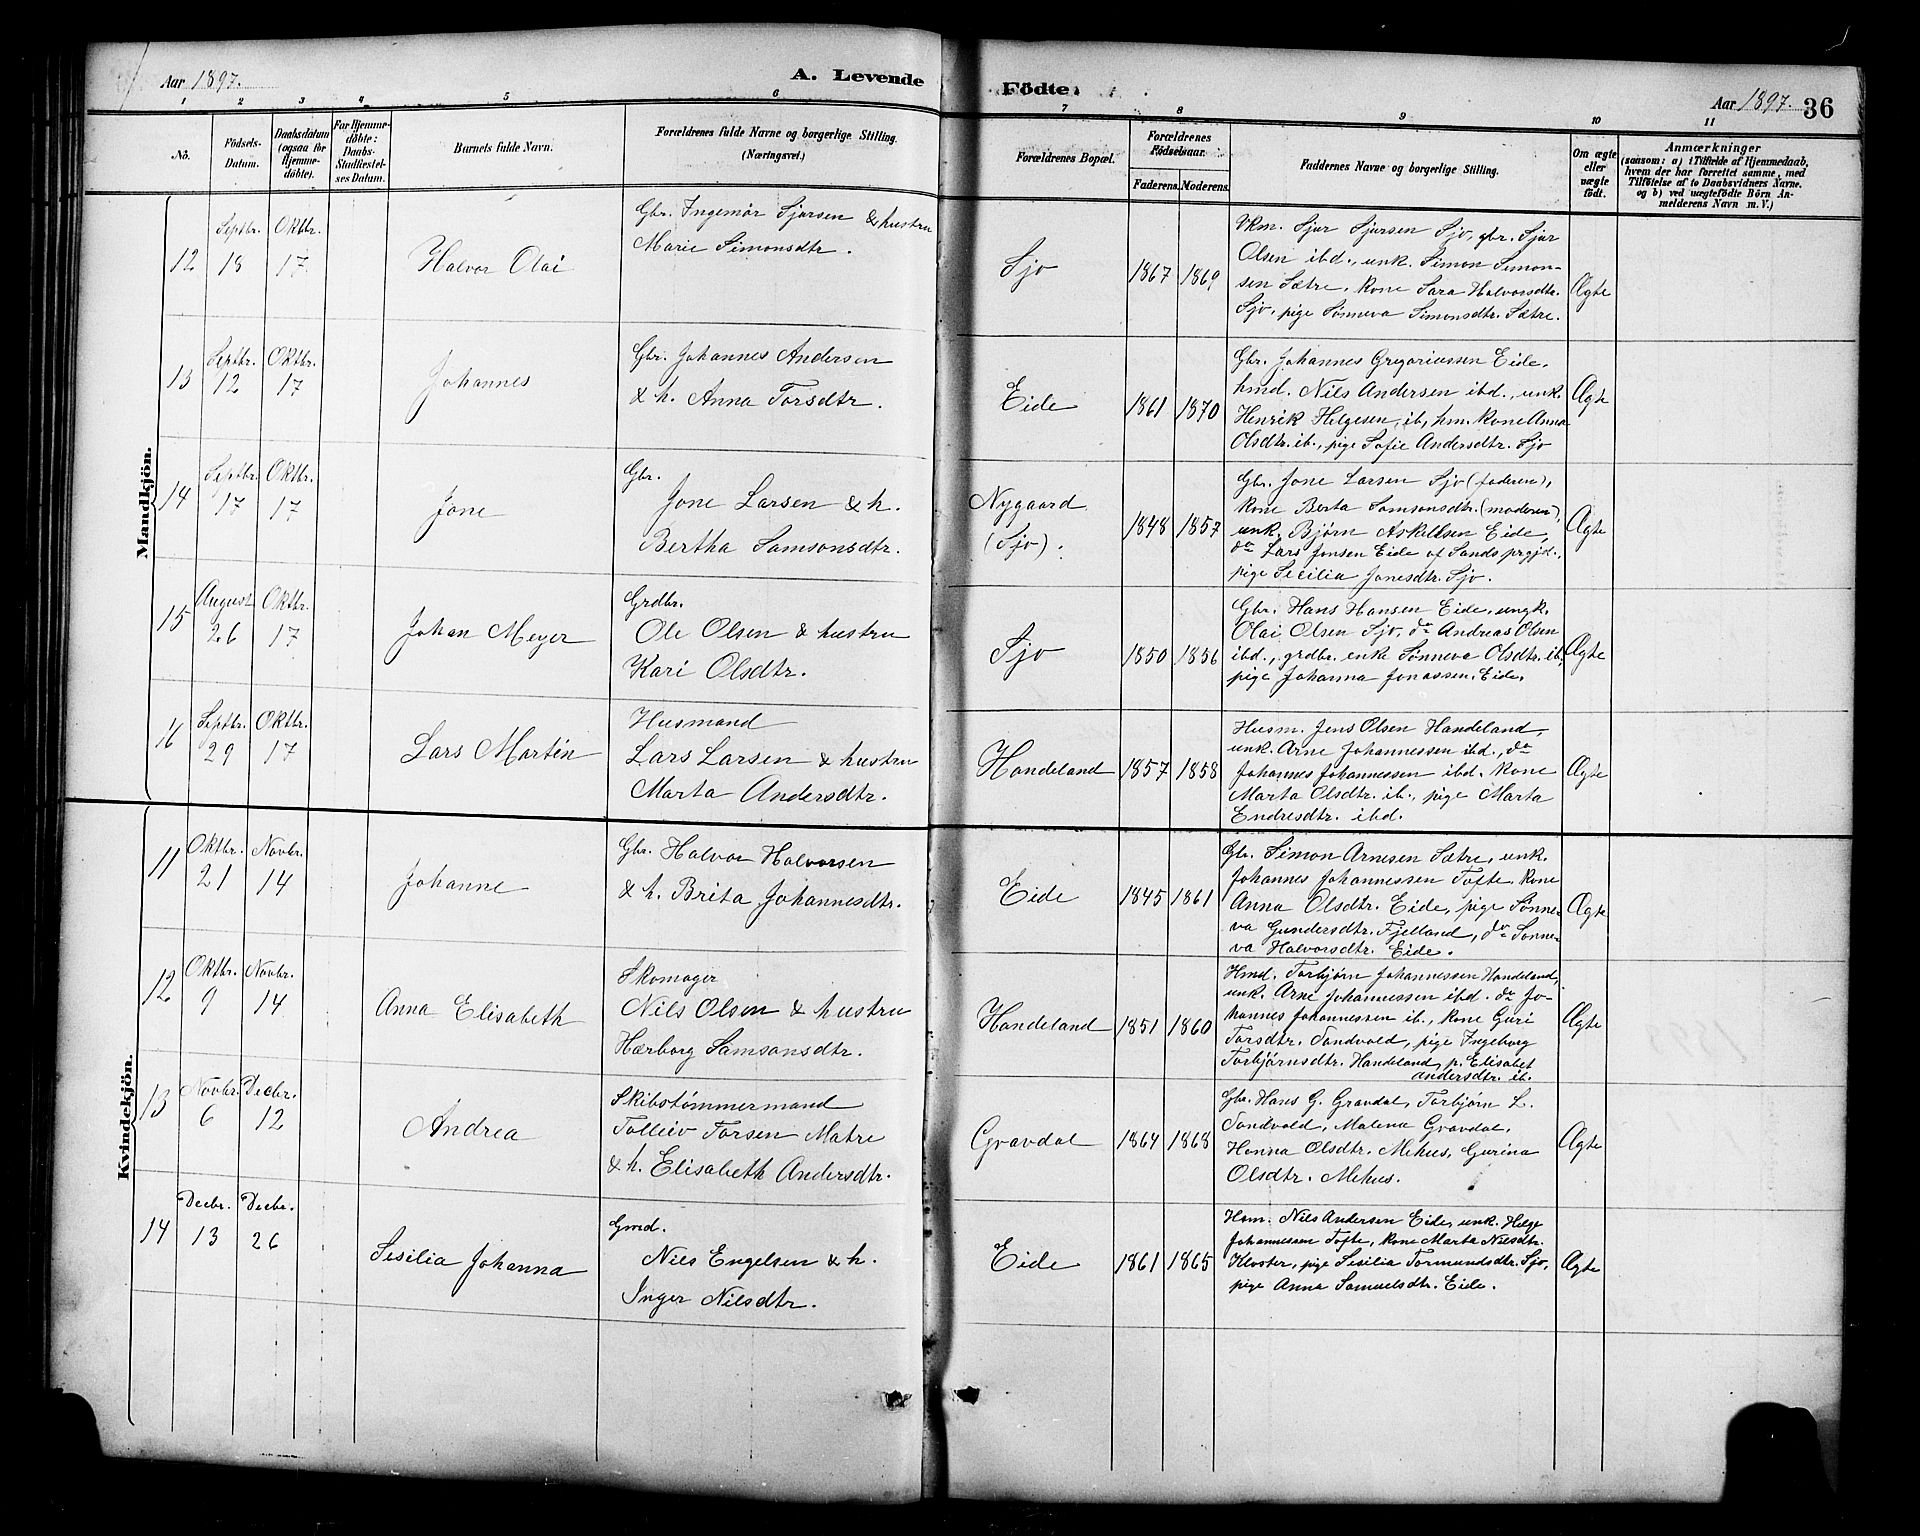 Aar 1897.
A. Levende
Födte.
Aar 1897. 36
1 2 3 4 5 6 7 8 9 10 11
No.
Födsels-
Datum.
Daabsdatum
(ogsaa for
Hjemme-
döbte).
For Hjemme-
döbte:
Daabs-
Stadfæstel-
ses Datum.
Barnets fulde Navn.
Forældrenes fulde Navne og borgerlige Stilling.
(Næringsvei.)
Forældrenes Bopæl.
Forældrenes
Födselsaar.
Faderens. Moderens.
Faddernes Navne og borgerlige Stilling.
Om ægte
eller
uægte
födt.
Anmærkninger
(saasom: a) i Tilfælde af Hjemmedaab,
hvem der har forrettet samme, med
Tilföielse af to Daabsvidners Navne.
og b) ved uægtefödte Börn An-
melderens Navn m. V.)
Mandkjön.
12
Septbr.
18
Oktbr.
17
Halvor Olai
Gbr. Ingemør Sjursen & hustru
Marie Simonsdtr.
Sjo
1867 1869
Vkm. Sjur Sjursen Sjo, gbr. Sjur
Olsen ibd., unk. Simon Simon-
sen Sætre, kone Sara Halvorsdtr.
Sjo, pige Sønneva Simonsdtr. Sætre.
Ægte
13
Septbr.
12
Oktbr.
17
Johannes
Gbr. Johannes Andersen
& h. Anna Torsdtr.
Eide
1861 1870
Gbr. Johannes Gregoriussen Eide,
hmd. Nils Andersen ibd., unk.
Henrik Helgesen, ib, hm. kone Anna
Olsdtr. ib., pige Sofie Andersdtr. Sjo
Ægte
14
Septbr.
17
Oktbr.
17
Jone
Gbr.
Jone Larsen & h.
Bertha Samsonsdtr.
Nygaard
(Sjo).
1848 1857
Gbr. Jone Larsen Sjo (faderen),
kone Berta Samsonsdtr. (moderen),
unk. Bjørn Askellsen Eide,
do Lars Jonsen Eide af Sands prgjd.,
pige Secilia Jonesdtr. Sjo.
Ægte
15
August
26
Oktbr.
17
Johan Meyer
Grdbr.
Ole Olsen & hustru
Kari Olsdtr.
Sjo
1850 1856
Gbr. Hans Hansen Eide, ungk.
Olai Olsen Sjo, do Andreas Olsen
ibd., grdbr. enke Sønneva Olsdtr. ib,
pige Johanna Jonassen. Eide.
Ægte
16
Septbr.
29
Oktbr.
17
Lars Martin
Husmand
Lars Larsen & hustru
Marta Andersdtr.
Handeland
1857 1858
Husm. Jens Olsen Handeland,
unk. Arne Johannessen ibd., do
Johannes Johannessen ibd. kone
Marta Olsdtr. ib., pige Marta
Endresdtr. ibd.
Ægte
Kvindekjön.
11
Oktbr.
21
Novbr.
14
Johanne
Gbr. Halvor Halvorsen
& h. Brita Johannesdtr.
Eide
1845 1861
Gbr. Simon Arnesen Sætre, unk.
Johannes Johannessen Tofte, kone
Anna Olsdtr. Eide, pige Sønne-
va Gundersdtr. Fjelland, do Sønne-
va Halvorsdtr. Eide.
Ægte
12
Oktbr.
9
Novbr.
14
Anna Elisabeth
Skomager
Nils Olsen & hustru
Hærborg Samsonsdtr.
Handeland
1851 1860
Hmd. Torbjørn Johannessen Handeland,
unk. Arne Johannessen ibd. do Jo-
hannes Johannessen ib., kone Guri
Torsdtr. Tandvold, pige Ingeborg
Torbjørnsdtr. Handeland, p. Elisabet
Andersdtr. ib.
Ægte
13
Novbr.
6
Decbr.
12
Andrea
Skibstømmermand
Tolleiv Torsen Matre
& h. Elisabeth Andersdtr.
Gravdal
1864 1868
Gbr. Hans G. Gravdal, Torbjørn L.
Tandvold, Malena Gravdal,
Hanna Olsdtr. Mehus, Gurina
Olsdtr. Mehus.
Ægte
14
Decbr.
13
Decbr.
26
Sesilia Johanna
Gmd.
Nils Engelsen & h.
Inger Nilsdtr.
Eide
1861 1865
Hsm. Nils Andersen Eide, unk. Helge
Johannessen Tofte, kone Marta Nilsdtr.
Kloster, pige Sesilia Tormundsdtr. Sjo,
pige Anna Samuelsdtr. Eide.
Ægte